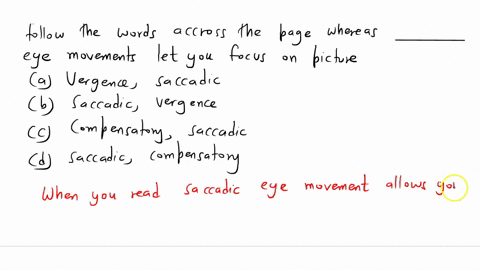 follow the words accross the page whereas ________
eye movements let you focus on picture
(a) Vergence, saccadic
(b) Saccadic, vergence
(c) Compensatory, saccadic
(d) saccadic, compensatory
When you read saccadic eye movement allows you